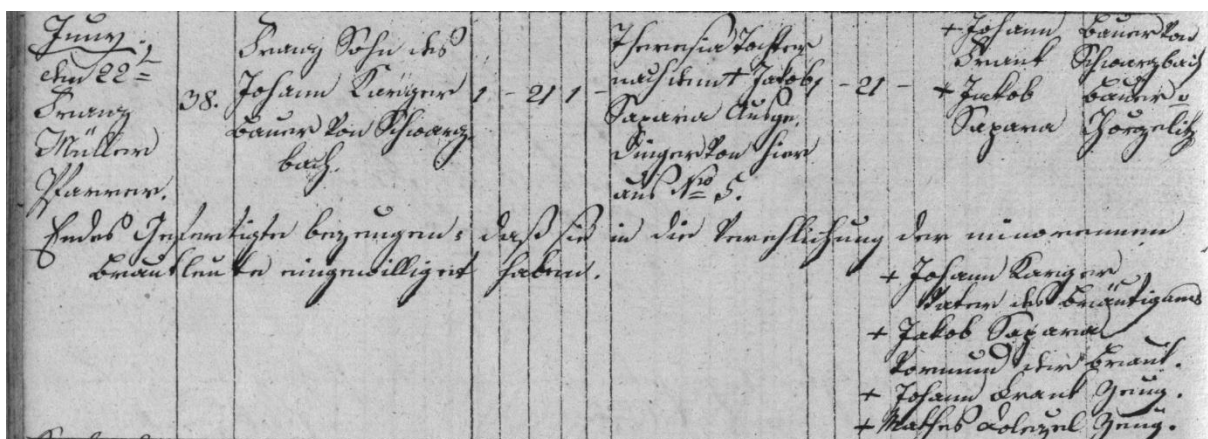 Juny.
den 22t
Franz
Müller
Pfarrer.
38.
Franz Sohn des
Johann Kariger
Bauer von Schwarz
bach.
1 - 21 1 -
Theresia Tochter
nach dem + Jakob
Sapara Ausge,
dinger von hier
aus No 5.
1 - 21 -
+ Johann Bauer von
Krant Schwarzbach
+ Jakob Bauer v
Sapara
Endes Gefertigte bezeugen: daß sie in die Verehlichung der minorennen
Brautleute eingewilliget haben.
+ Johann Kariger
Vater des Bräutigams
+ Jakob Sapara
Vormund der Braut.
+ Johann Krant Zeug.
+ Mathes Zeug.